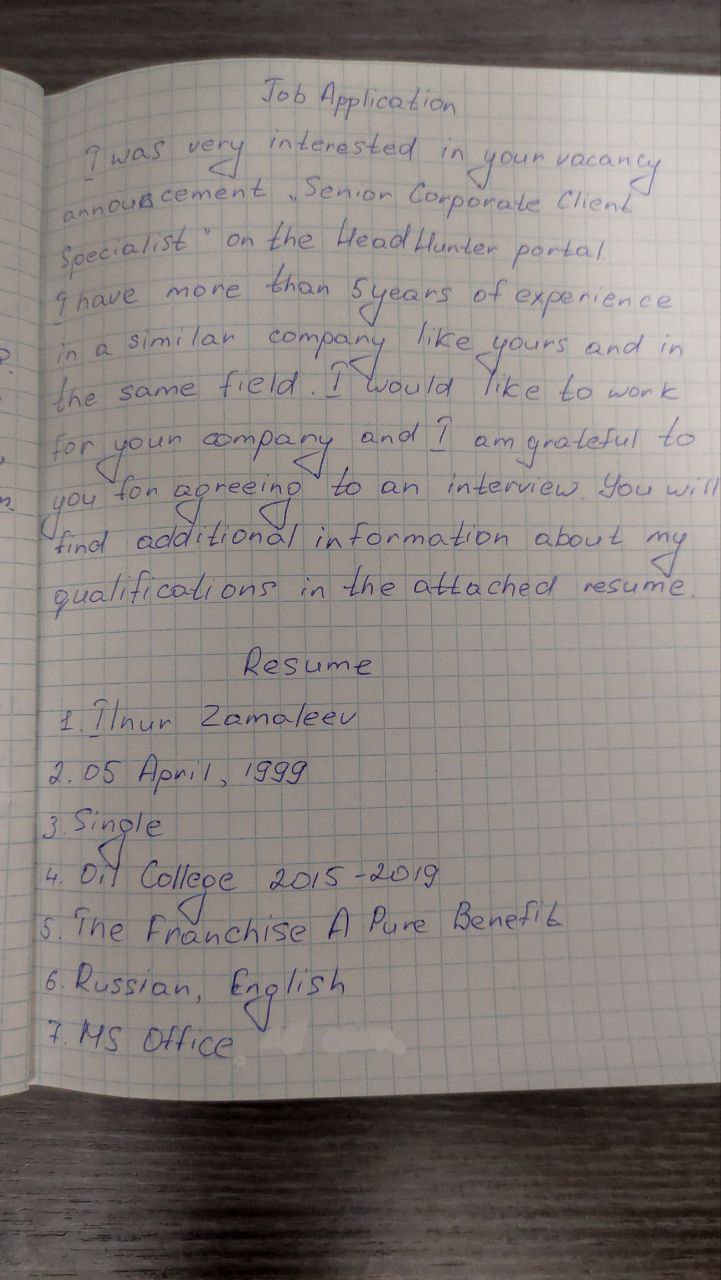 Job Application
I was very interested in your vacancy
announcement „Senior Corporate Client
Specialist" on the HeadHunter portal.
I have more than 5 years of experience
in a similar company like yours and in
the same field. I would like to work
for your company and I am grateful to
you for agreeing to an interview. You will
find additional information about my
qualifications in the attached resume.
Resume
1. Ilnur Zamaleev
2. 05 April, 1999
3. Single
4. Oil College 2015-2019
5. The Franchise A Pure Benefit
6. Russian, English
7. MS Office